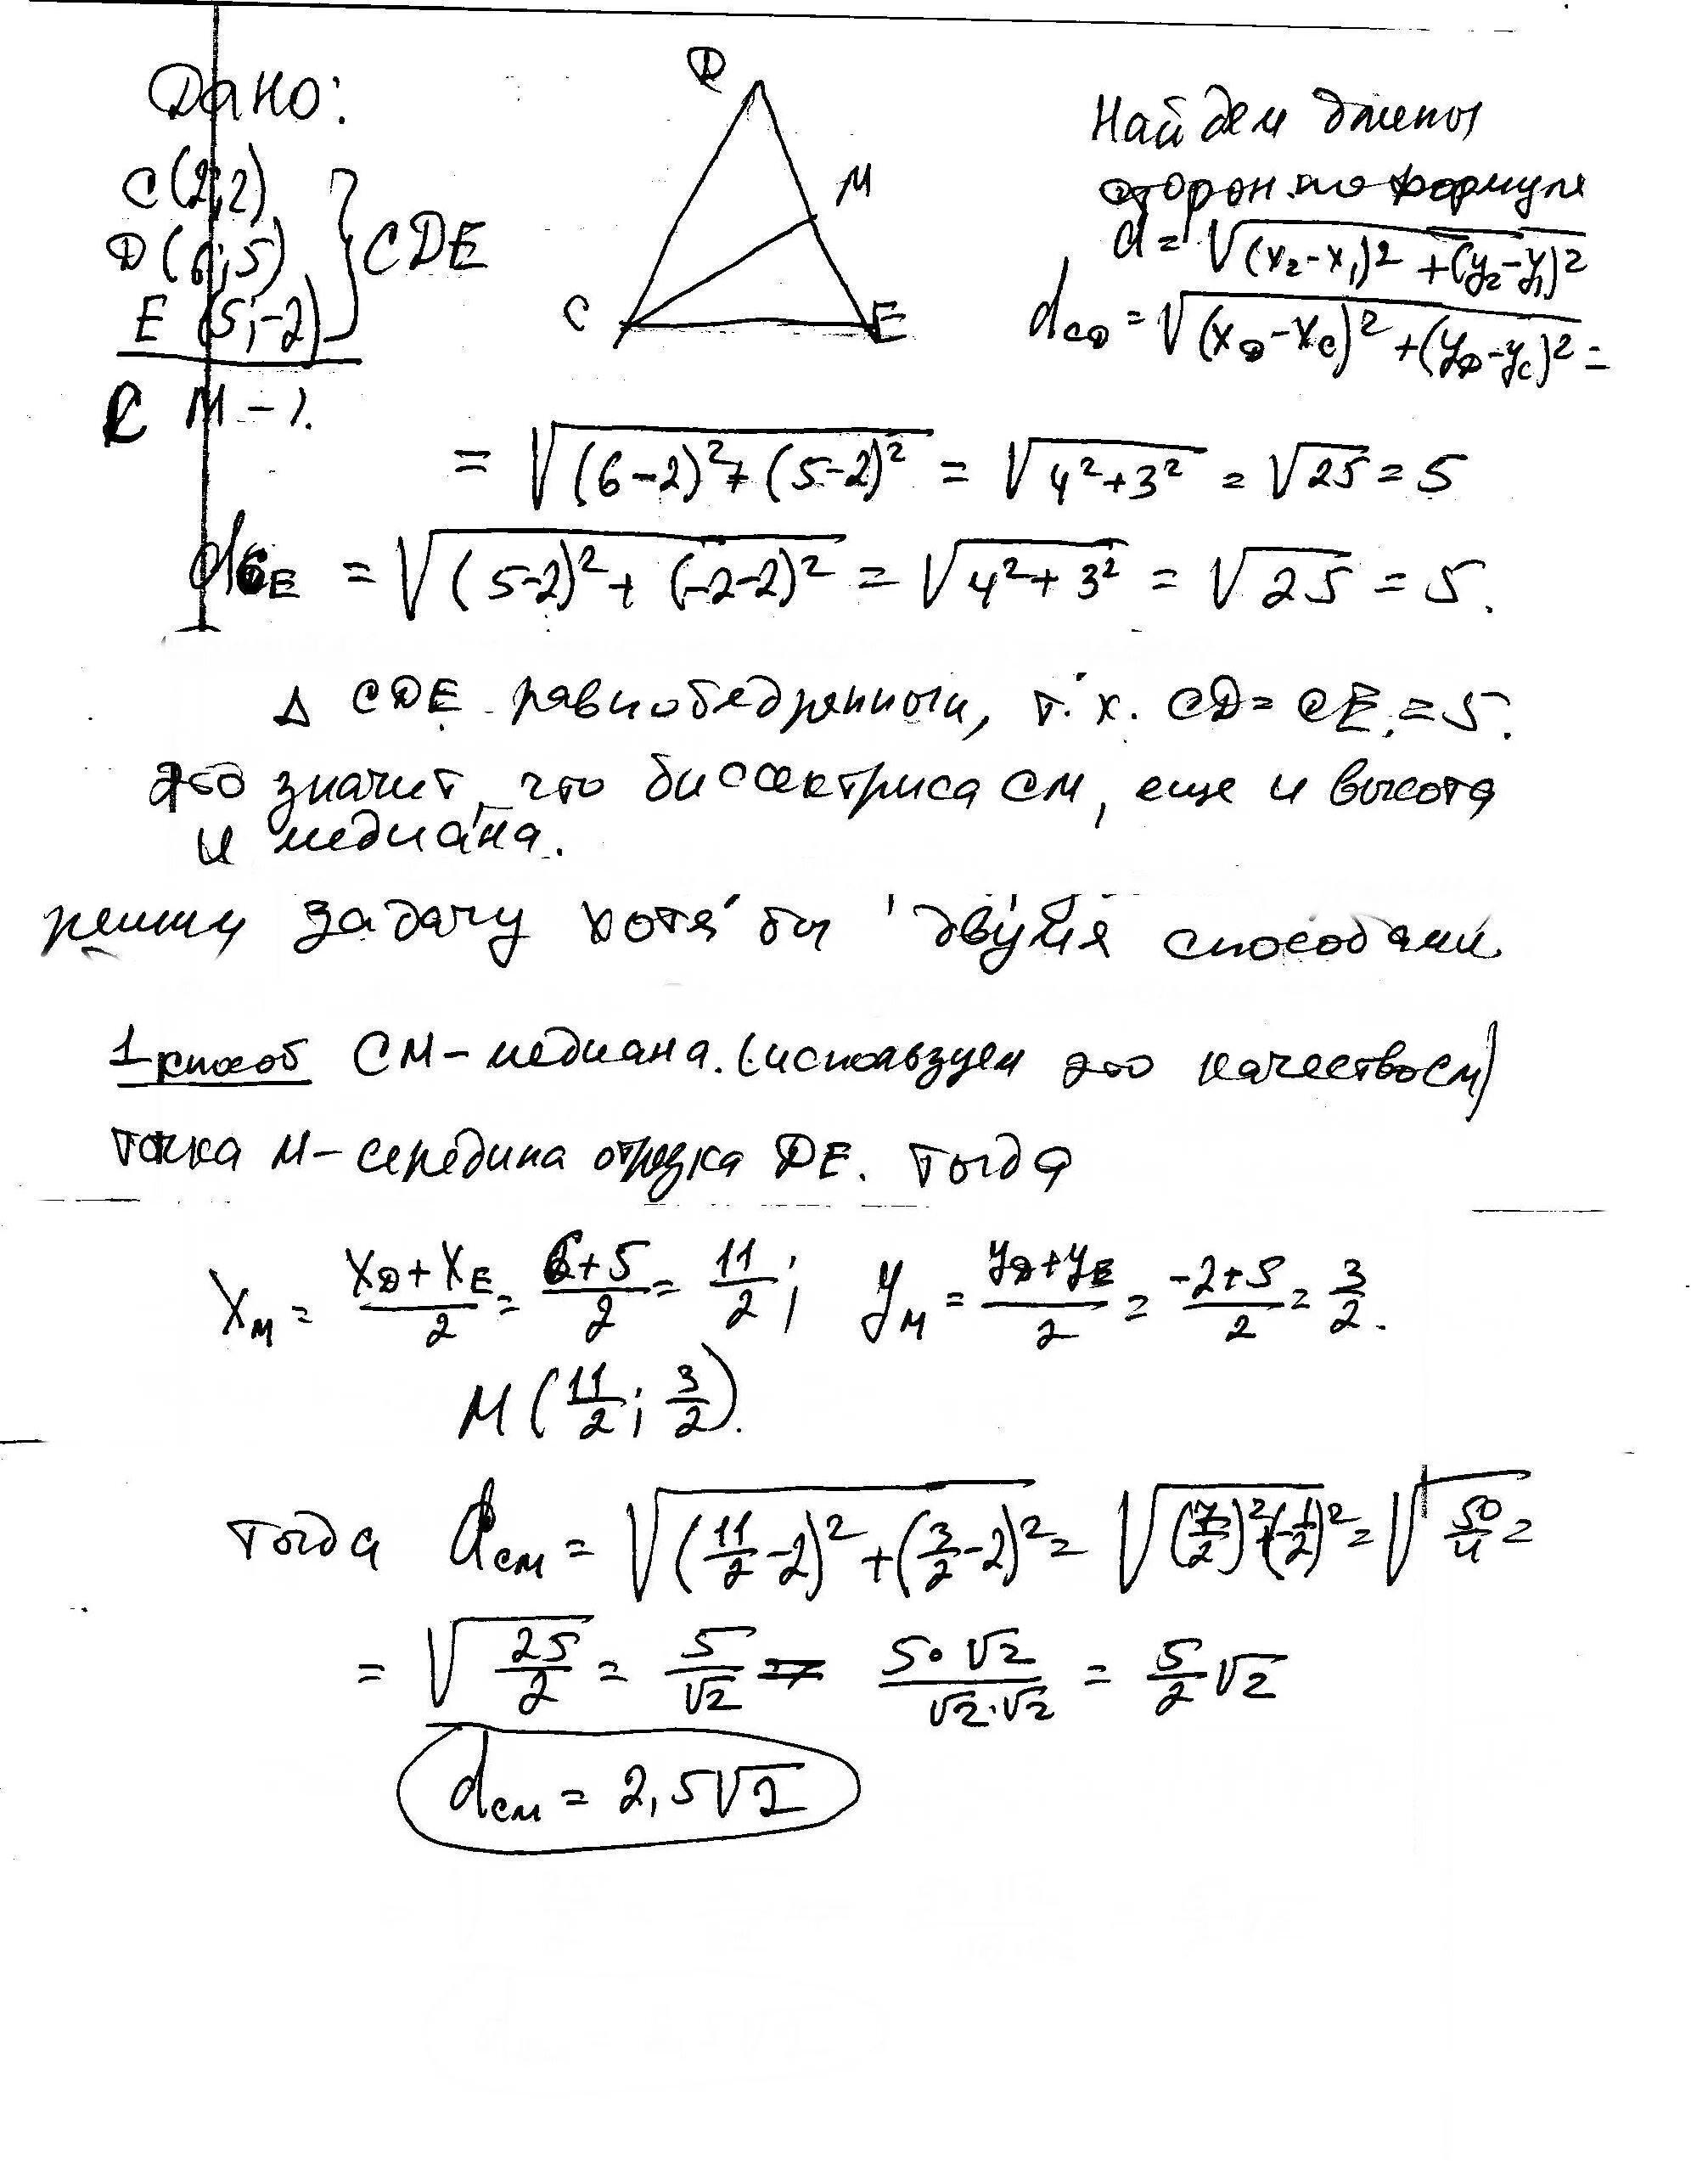 Дано:
C(2;2)
D(6;5)
E(5;-2)
} CDE
CM - ?
D
M
C
E
Найдем длины
сторон по формуле
d = √((x₂-x₁)² + (y₂-y₁)²)
d_CD = √((x_D-x_C)² + (y_D-y_C)²) =
= √((6-2)² + (5-2)²) = √(4²+3²) = √25 = 5
d_CE = √((5-2)² + (-2-2)²) = √(4²+3²) = √25 = 5.
Δ CDE равнобедренный, т.к. CD = CE = 5.
это значит, что биссектриса CM, еще и высота
и медиана.
решим задачу хотя бы двумя способами
1 способ CM - медиана. (используем это качество CM)
точка M - середина отрезка DE. Тогда
x_M = (x_D + x_E)/2 = (6+5)/2 = 11/2; y_M = (y_D + y_E)/2 = (-2+5)/2 = 3/2.
M (11/2; 3/2).
тогда d_CM = √((11/2 - 2)² + (3/2 - 2)²) = √((7/2)² + (-1/2)²) = √(50/4) =
= √(25/2) = 5/√2 = (5·√2)/(√2·√2) = 5/2 √2
d_CM = 2,5√2